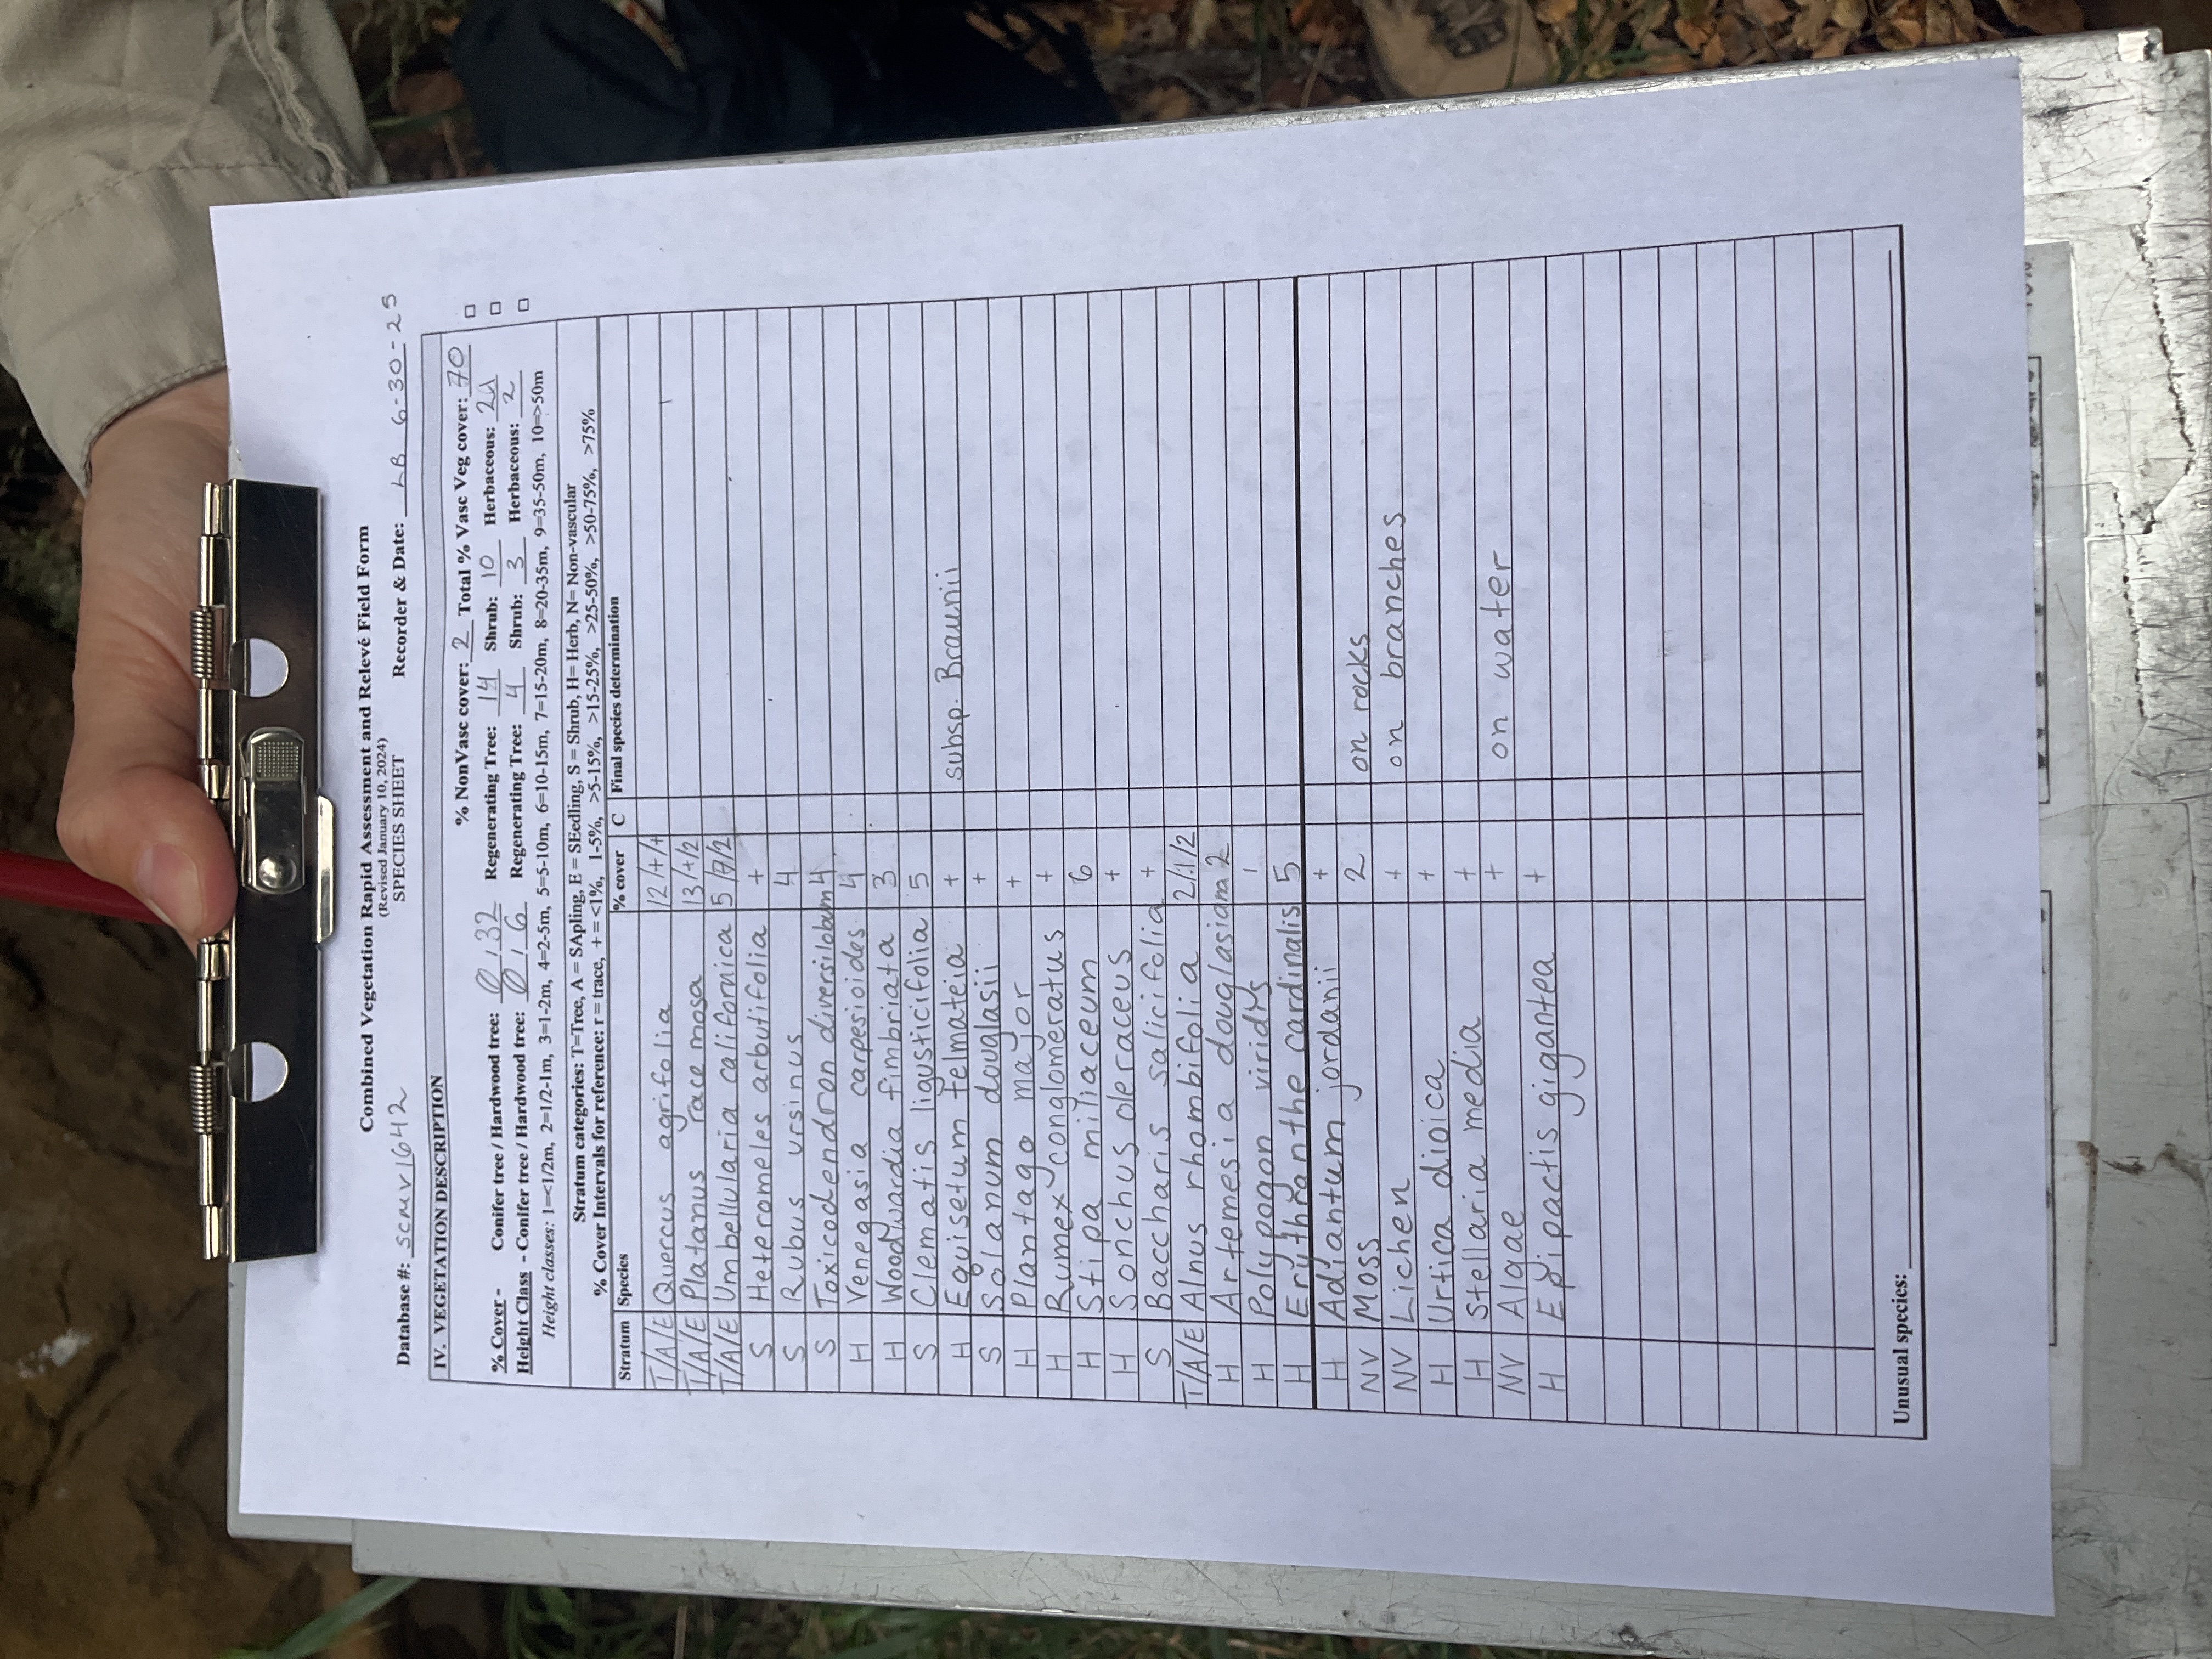 Combined Vegetation Rapid Assessment and Relevé Field Form
(Revised January 10, 2024)
SPECIES SHEET
Database #: scmv1642 Recorder & Date: LB 6-30-25
IV. VEGETATION DESCRIPTION
% NonVasc cover: 2 Total % Vasc Veg cover: 70
% Cover - Conifer tree / Hardwood tree: 0 / 32 Regenerating Tree: 14 Shrub: 10 Herbaceous: 24
Height Class - Conifer tree / Hardwood tree: 0 / 6 Regenerating Tree: 4 Shrub: 3 Herbaceous: 2
Height classes: 1=<1/2m, 2=1/2-1m, 3=1-2m, 4=2-5m, 5=5-10m, 6=10-15m, 7=15-20m, 8=20-35m, 9=35-50m, 10=>50m
Stratum categories: T=Tree, A = SApling, E = SEedling, S = Shrub, H= Herb, N= Non-vascular
% Cover Intervals for reference: r = trace, + = <1%, 1-5%, >5-15%, >15-25%, >25-50%, >50-75%, >75%
Stratum Species % cover C Final species determination
T/A/E Quercus agrifolia 12/+/+
T/A/E Platanus racemosa 13/+/2
T/A/E Umbellularia californica 5/7/2
S Heteromeles arbutifolia +
S Rubus ursinus 4
S Toxicodendron diversilobum 4
H Venegasia carpesioides 4
H Woodwardia fimbriata 3
S Clematis ligusticifolia 5
H Equisetum telmateia + subsp. Braunii
S Solanum douglasii +
H Plantago major +
H Rumex conglomeratus +
H Stipa miliaceum 6
H Sonchus oleraceus +
S Baccharis salicifolia +
T/A/E Alnus rhombifolia 2/1/2
H Artemesia douglasiana 2
H Polypogon viridis 1
H Erythranthe cardinalis 5
H Adiantum jordanii +
NV Moss 2 on rocks
NV Lichen + on branches
H Urtica dioica +
H Stellaria media +
NV Algae + on water
H Epipactis gigantea +
Unusual species: